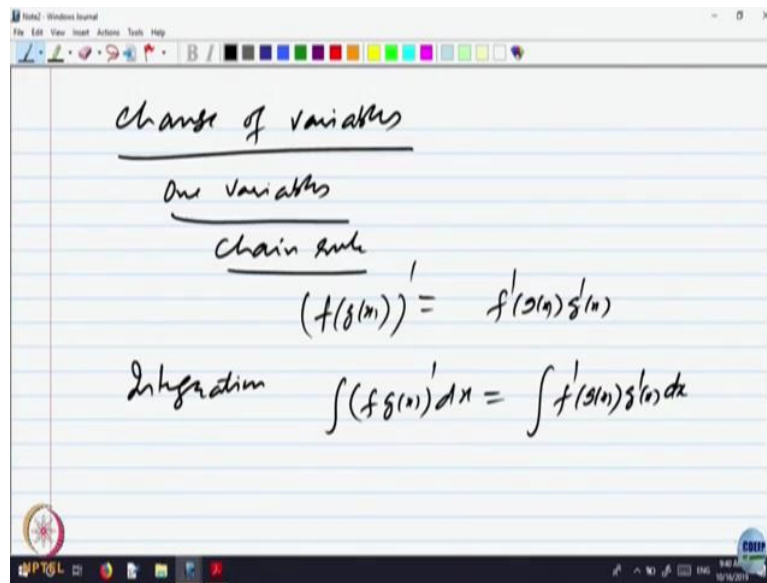 Note2 - Windows Journal
File Edit View Insert Actions Tools Help
B I
Change of variables
One variables
Chain rule
(f(g(x)))' = f'(g(x)) g'(x)
Integration ∫(f g(x))' dx = ∫ f'(g(x)) g'(x) dx
NPTEL
CDEEP
ENG
10/16/2019